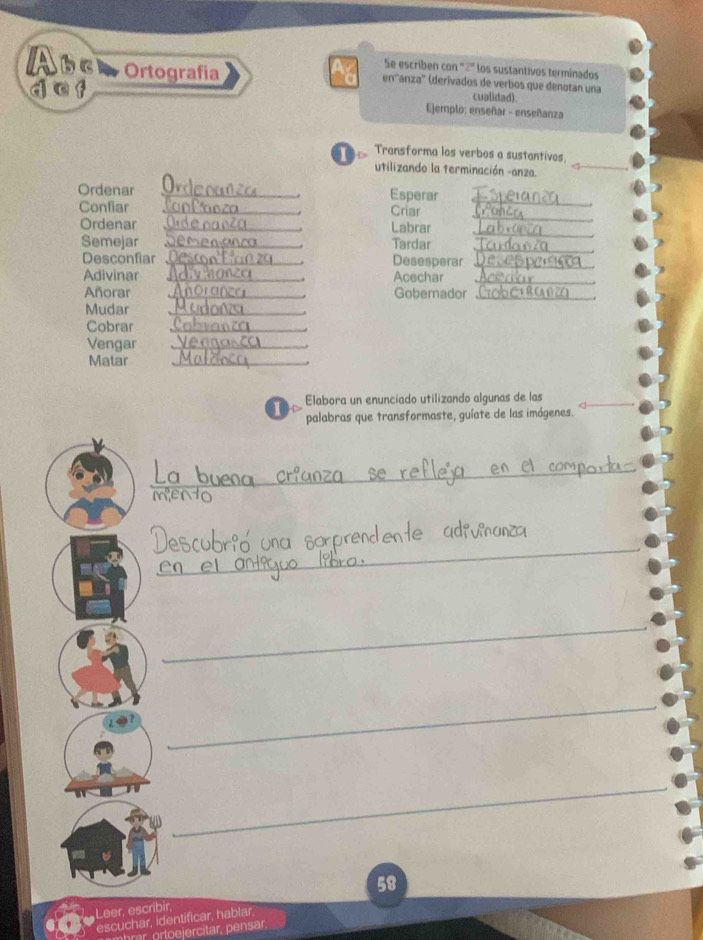 Abc
def
Ortografía
Se escriben con "Z" los sustantivos terminados
en"anza" (derivados de verbos que denotan una
cualidad).
Ejemplo: enseñar - enseñanza
Transforma los verbos a sustantivos,
utilizando la terminación -anza.
Ordenar Ordenanza
Confiar Confianza
Ordenar Ordenanza
Semejar Semenanza
Desconfiar Desconfianza
Adivinar Adivinanza
Añorar Añoranza
Mudar Mudanza
Cobrar Cobranza
Vengar Venganza
Matar Matanza
Esperar Esperanza
Criar Crianza
Labrar Labranza
Tardar Tardanza
Desesperar
Acechar
Gobernador Gobernanza
Elabora un enunciado utilizando algunas de las
palabras que transformaste, guíate de las imágenes.
La buena crianza se refleja en el comporta-
miento
Descubrió una sorprendente adivinanza
en el antiguo libro.
¿ ?
58
Leer, escribir,
escuchar, identificar, hablar,
ortoejercitar, pensar.